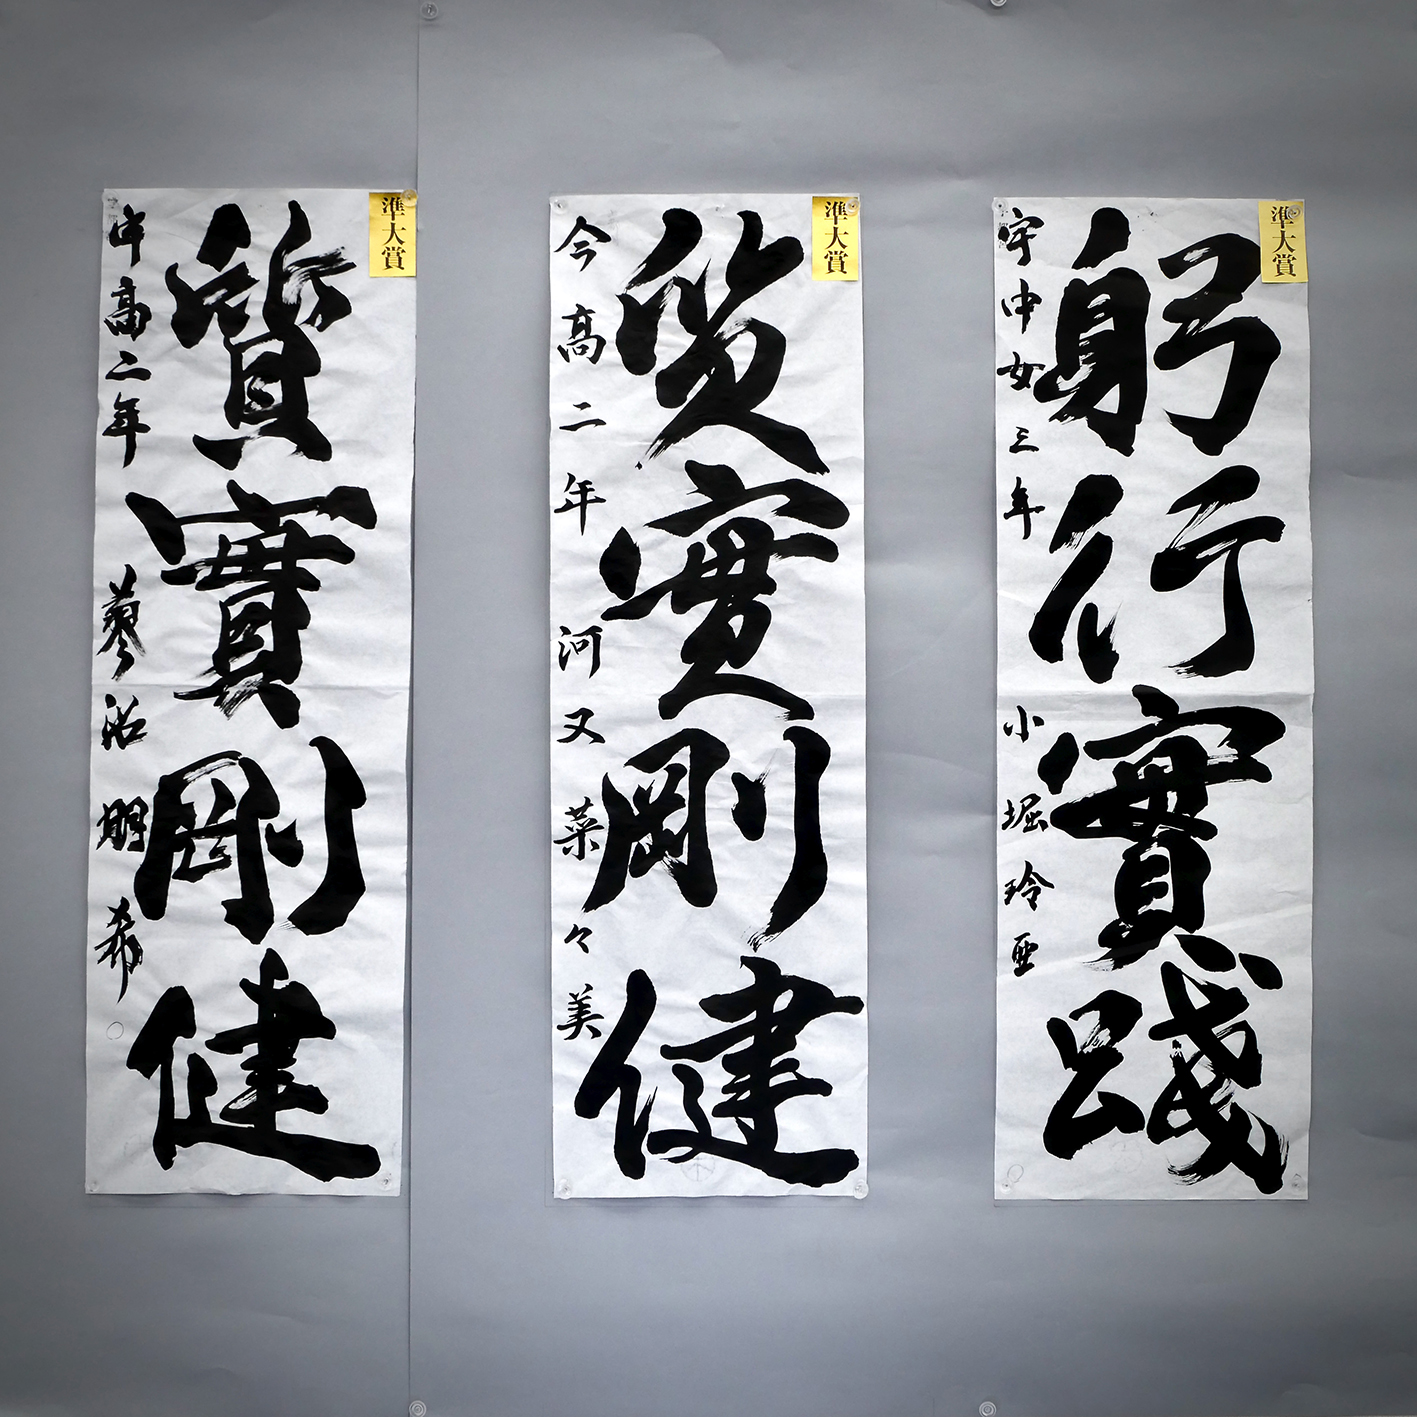 準大賞
躬行實踐
宇中女三年 小堀玲亜
準大賞
質實剛健
今高二年 河又菜々美
準大賞
質實剛健
中高二年 明希